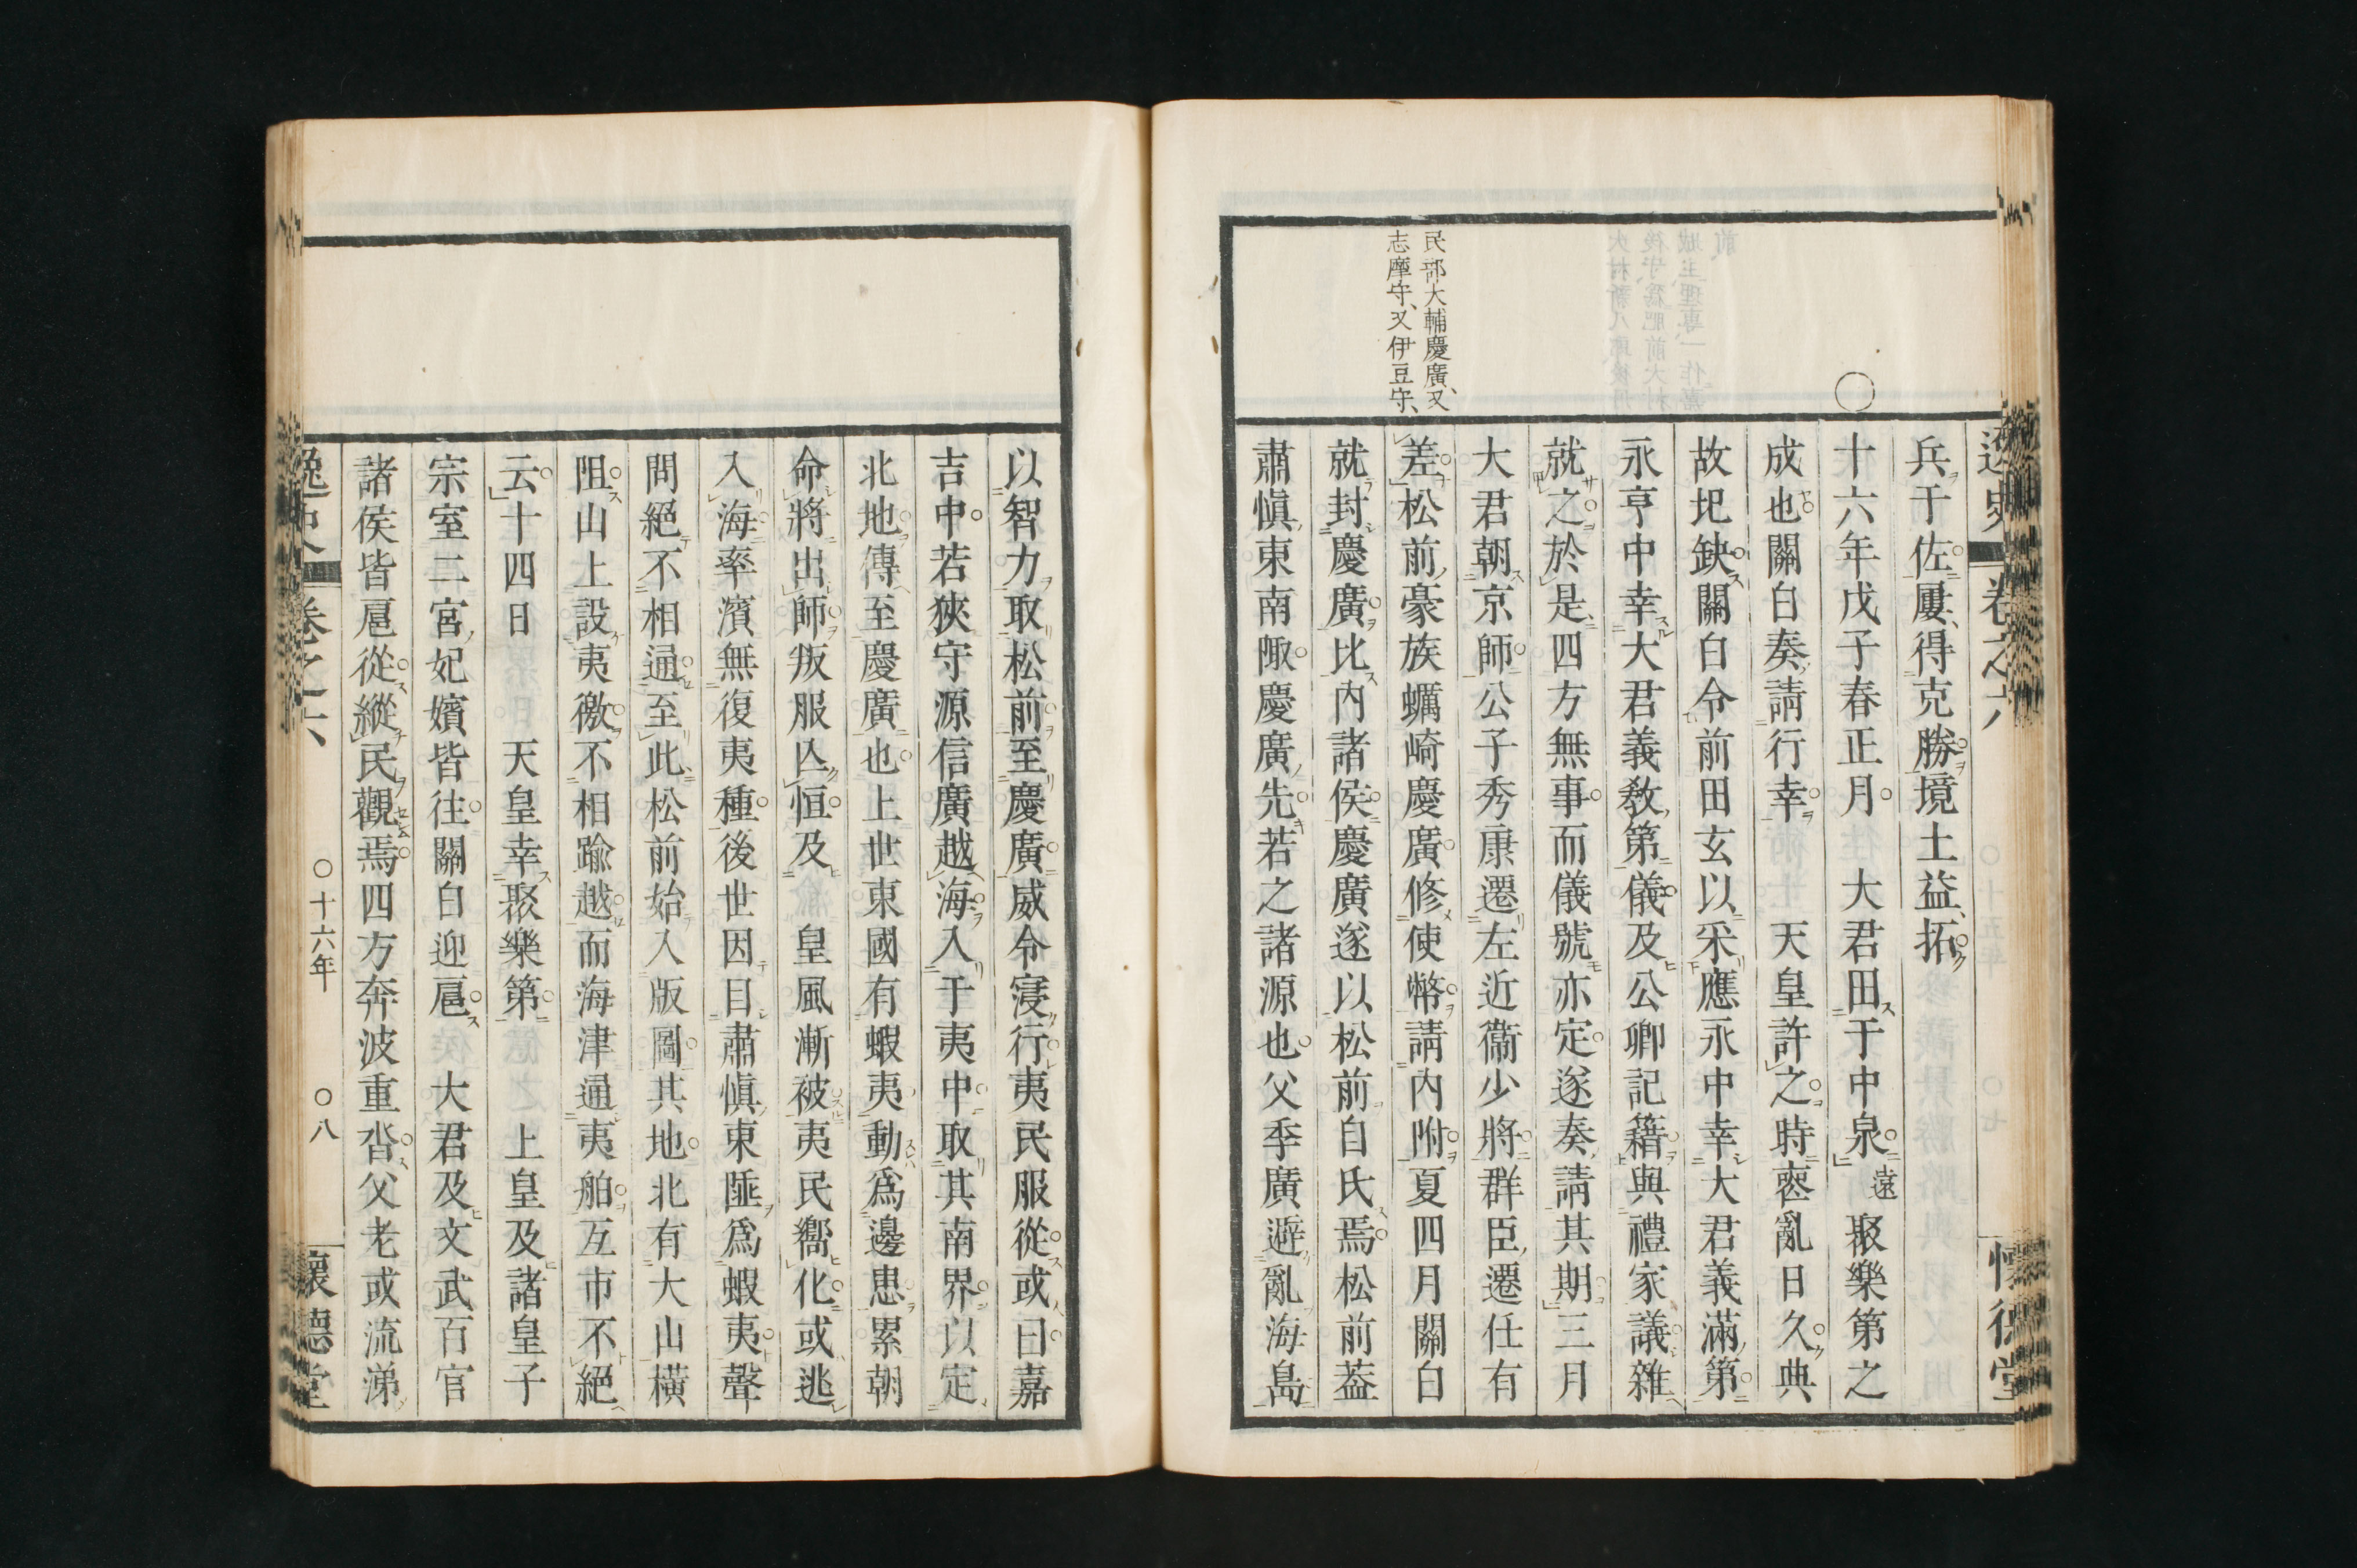 逸史 卷之六 懷德堂
兵于佐屢得克勝境土益拓
十六年戊子春正月 大君田于中泉遠 聚樂第之
成也關白奏請行幸 天皇許之時喪亂日久典
故圯缺關白令前田玄以采應永中幸大君義滿第
永亨中幸大君義教第儀及公卿記籍與禮家議雜
就之於是四方無事而儀號亦定遂奏請其期三月
大君朝京師公子秀康遷左近衞少將群臣遷任有
差松前豪族蠣崎慶廣修使幣請內附夏四月關白
就封慶廣比內諸侯慶廣遂以松前自氏焉松前葢
肅愼東南陬慶廣先若之諸源也父季廣避亂海島
民部大輔慶廣、又
志摩守、又伊豆守、
以智力取松前至慶廣威令寖行夷民服從或曰嘉
吉中若狹守源信廣越海入于夷中取其南界以定
北地傳至慶廣也上世東國有蝦夷動爲邊患累朝
命將出師叛服亾恒及 皇風漸被夷民嚮化或逃
入海率濱無復夷種後世因目肅愼東陲爲蝦夷聲
問絕不相通至此松前始入版圖其地北有大山橫
阻山上設夷徼不相踰越而海津通夷舶互市不絕
云十四日 天皇幸聚樂第 上皇及諸皇子
宗室二宮妃嬪皆往關白迎扈 大君及文武百官
諸侯皆扈從縱民觀焉四方奔波重沓父老或流涕
逸史 卷之六 〇十六年 〇八 懷德堂